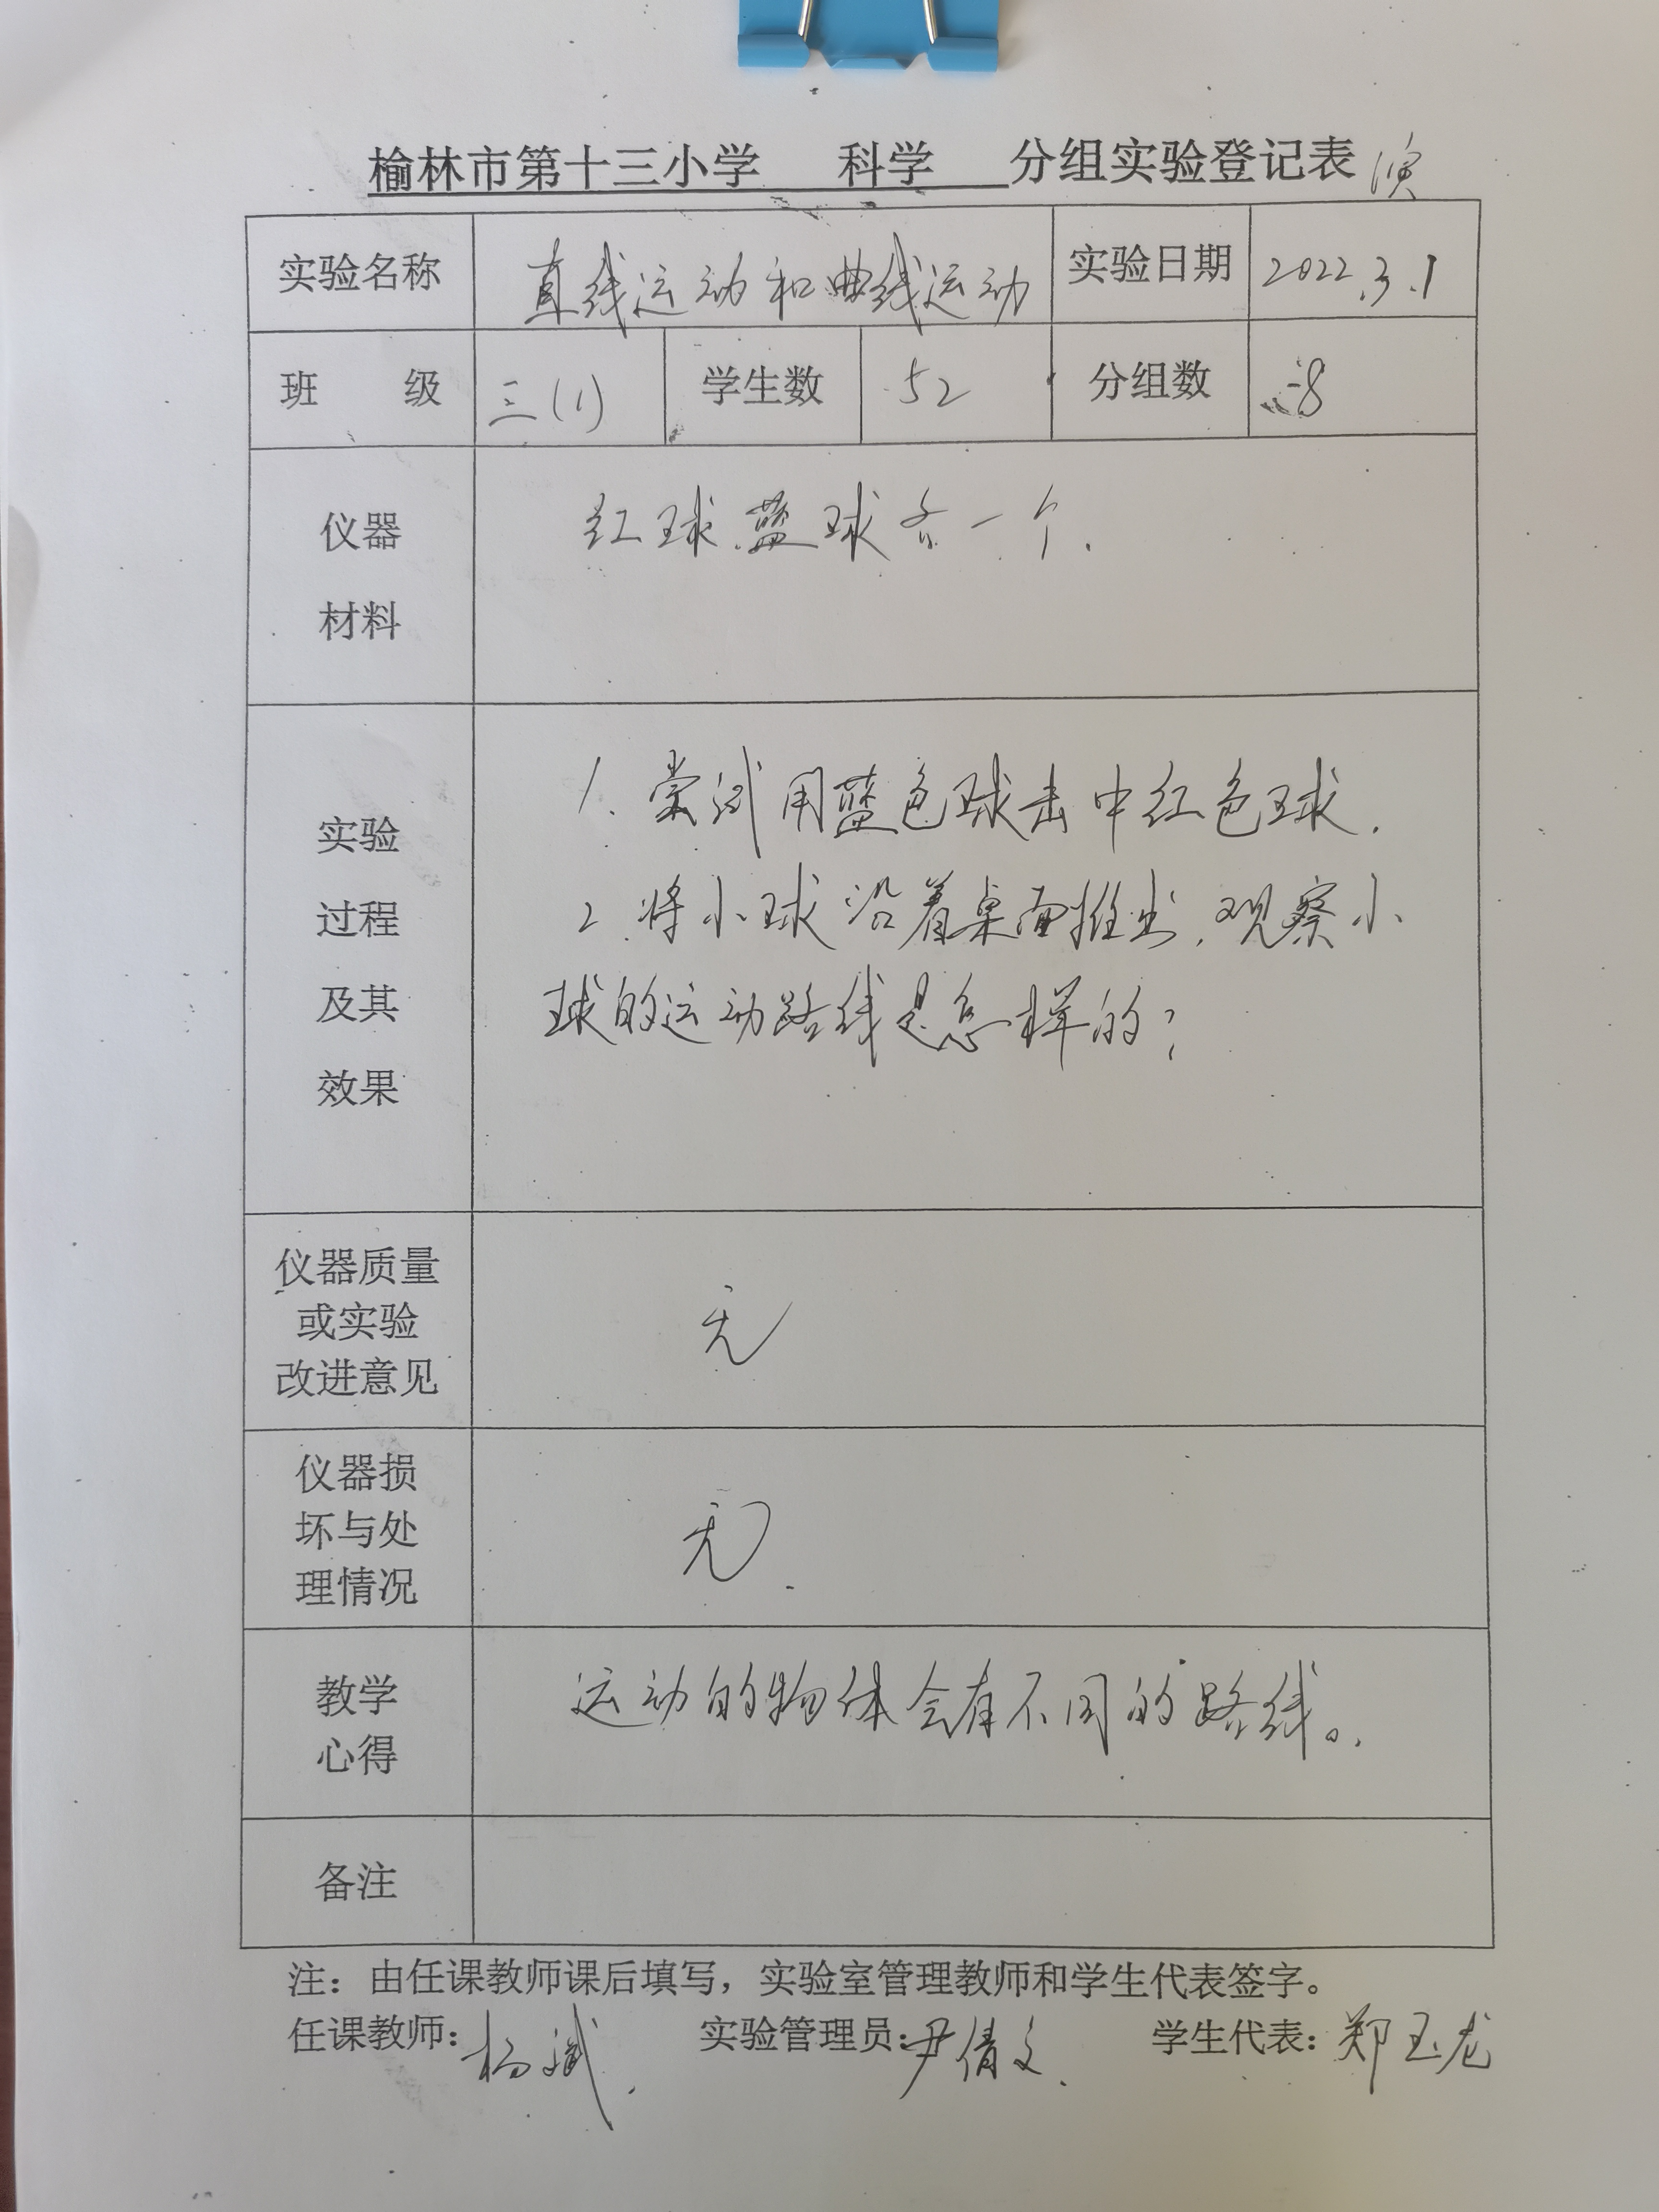 榆林市第十三小学 科学 分组实验登记表 演
实验名称 直线运动和曲线运动 实验日期 2022.3.1
班 级 三(1) 学生数 52 分组数 8
仪器
材料
红球、蓝球各一个.
实验
过程
及其
效果
1. 尝试用蓝色球击中红色球.
2. 将小球沿着桌面推出, 观察小
球的运动路线是怎样的?
仪器质量
或实验
改进意见
无
仪器损
坏与处
理情况
无.
教学
心得
运动的物体会有不同的路线。
备注
注：由任课教师课后填写，实验室管理教师和学生代表签字。
任课教师：杨斌. 实验管理员：尹倩文. 学生代表：郑玉龙